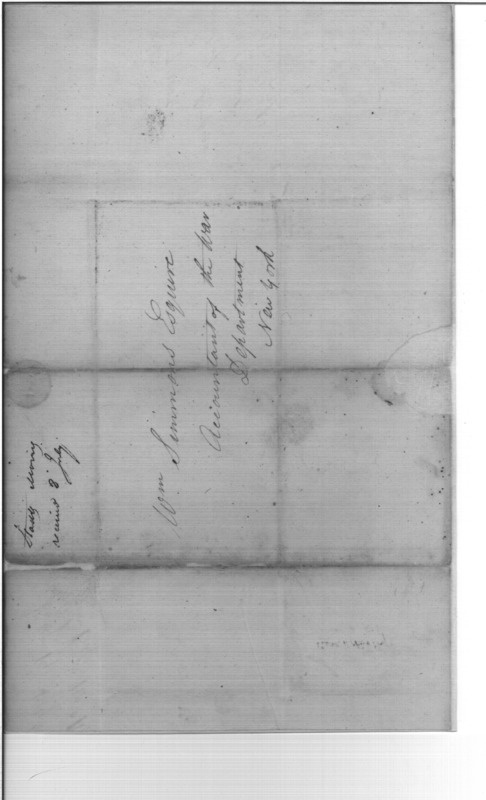 Wm Simmons Esquire
Accountant of the War
Department
New York
received 8 July